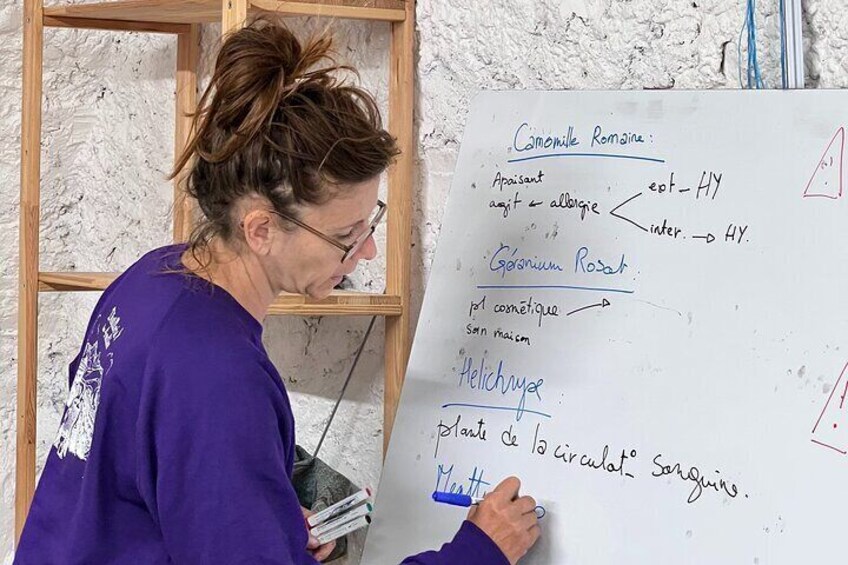 Camomille Romaine :
Apaisant
agit allergie
ext - HY
inter. → HY.
Géranium Rosat :
pl cosmétique →
soin maison
Helichryse :
plante de la circulat° Sanguine.